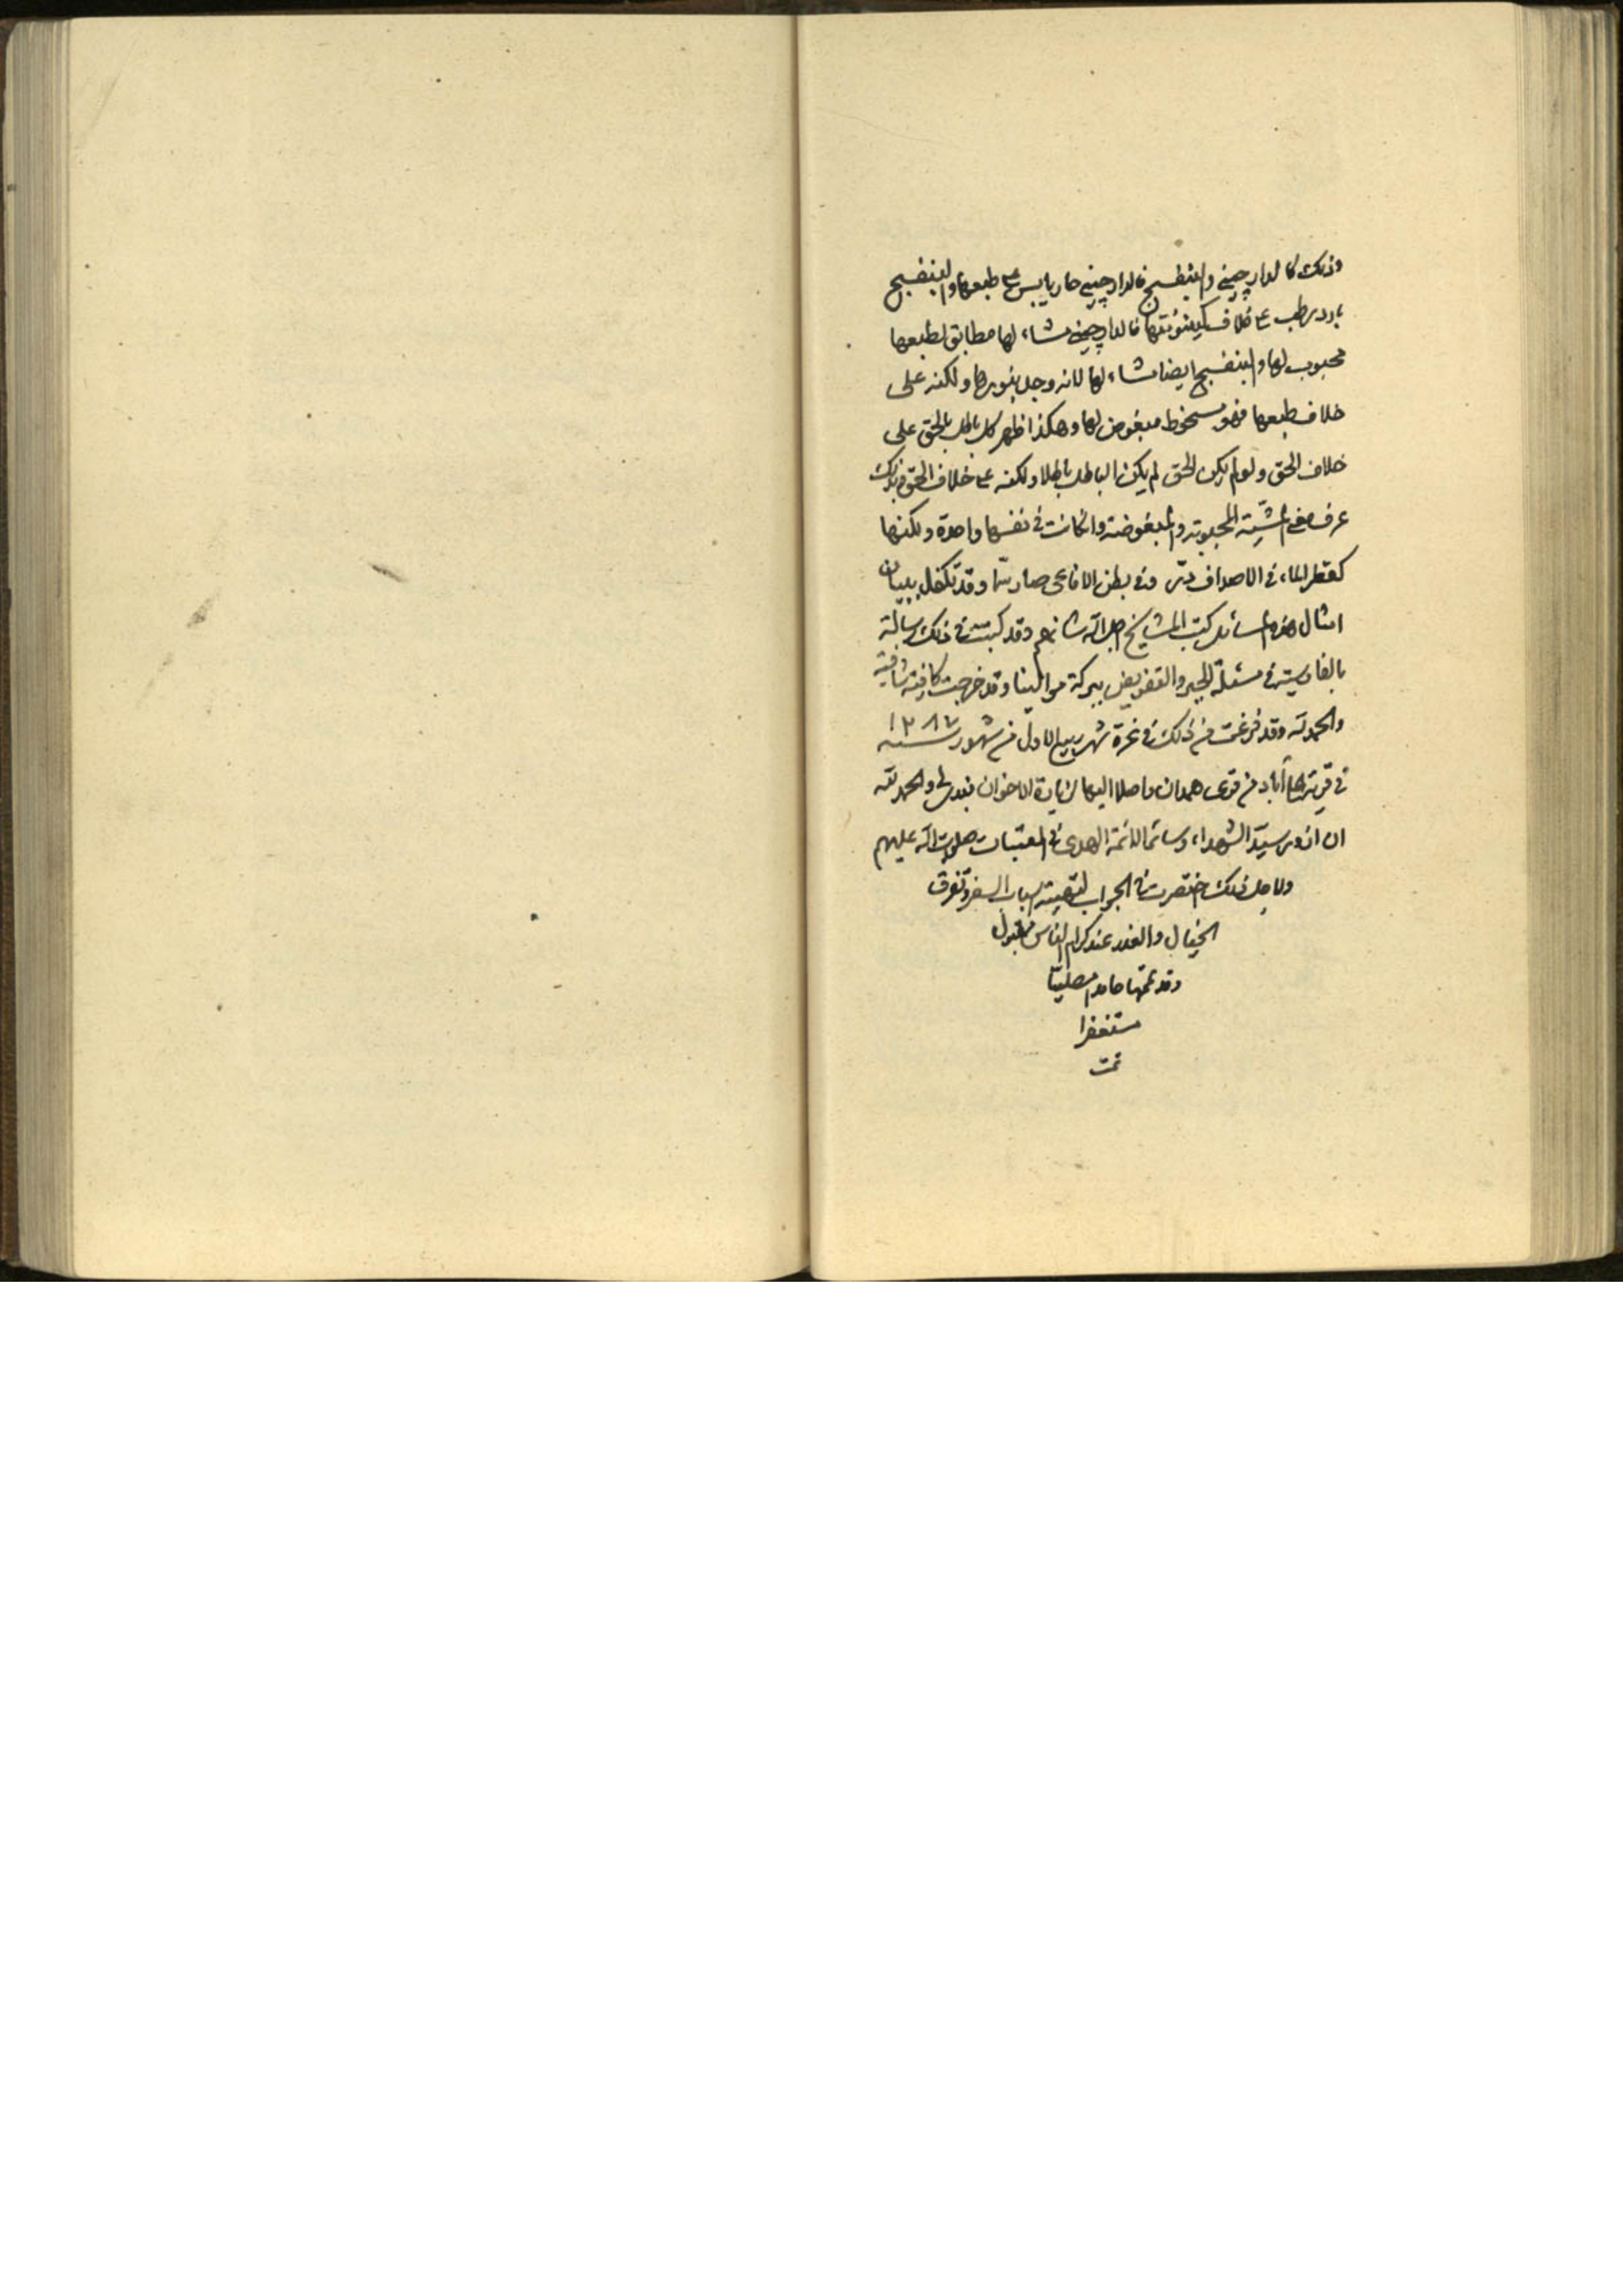 وذلك كالدارچيني والبنفسج فالدارچيني حار يابس على طبعها والبنفسج
بارد رطب على خلاف كينونتها فالدارچيني مشاء لها مطابق لطبعها
محبوب لها والبنفسج ايضا مشاء لها لانه وجد بنورها ولكنه على
خلاف طبعها فهو مسخوط مبغوض لها وهكذا ظهر كل باطل بالحق على
خلاف الحق ولو لم يكن الحق لم يكن الباطل باطلا ولكنه على خلاف الحق فبذلك
عرف معنى المشية المحبوبة والمبغوضة وان كانت في نفسها واحدة ولكنها
كقطر الماء في الاصداف در وفي بطن الافاعي صار سما وقد تكفل ببيان
امثال هذه المسائل كتب المشايخ اجل الله شانهم وقد كتبت في ذلك رسالة
بالفارسية في مسئلة الجبر والتفويض ببركة موالينا وقد خرجت كافية شافية
والحمد لله وقد فرغت من ذلك في غرة شهر ربيع الاول من شهور سنة ١٢٨٦
في قرية آباد من قرى همدان واصلا اليها لزيارة الاخوان والحمد لله
ان ازور سيد الشهداء وسائر الائمة الهدى في العتبات صلوات الله عليهم
ولاجل ذلك اختصرت في الجواب لتهيئة اسباب السفر وتفرق
الخيال والعذر عند كرام الناس مقبول
وقد تمتها حامدا مصليا
مستغفرا
تمت